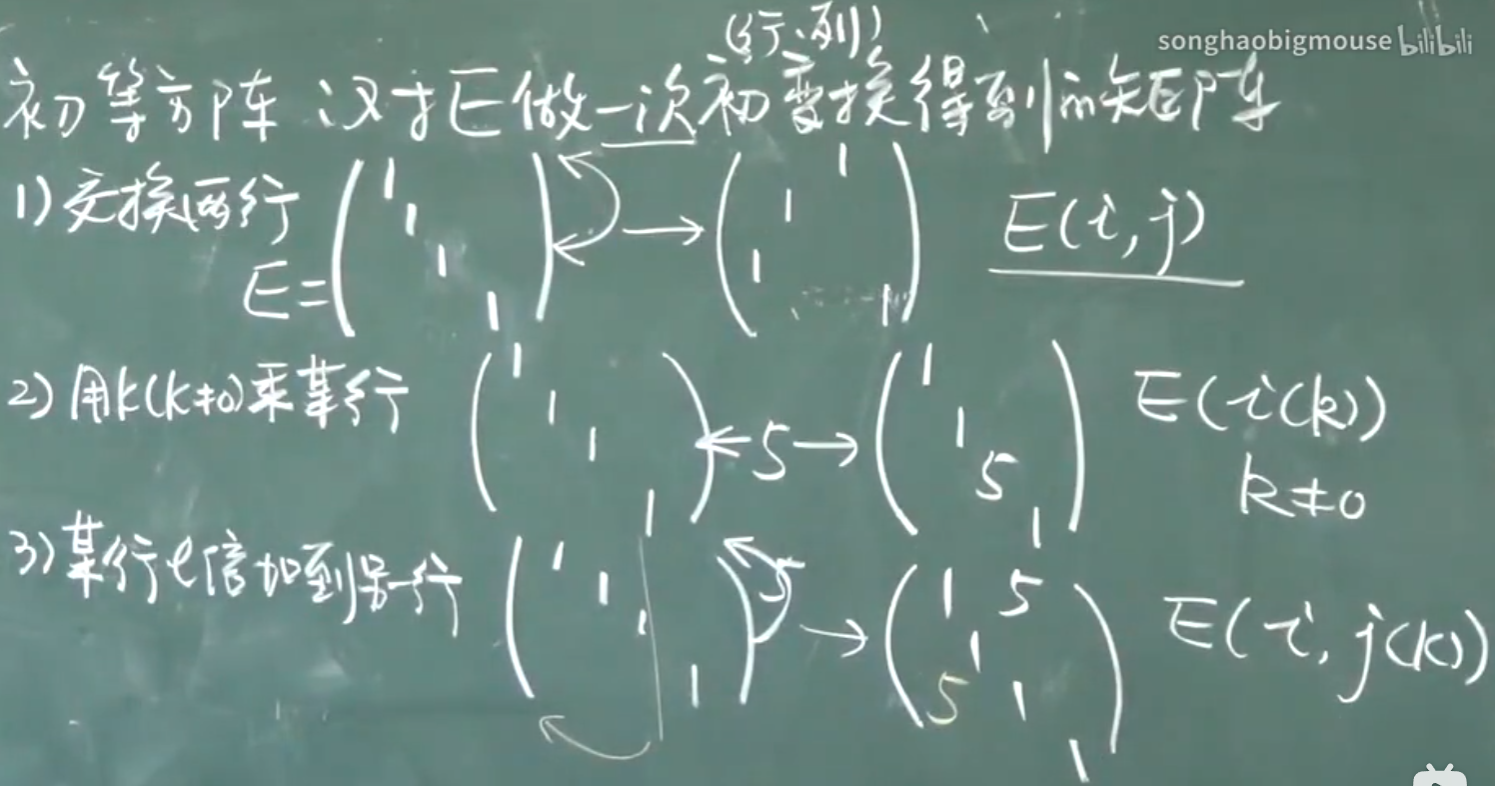 (行、列)
songhaobigmouse bilibili
初等方阵:对E做一次初等变换得到的矩阵
1)交换两行
E= ( 1 1 1 1 ) → ( 1 1 1 1 ) E(i,j)
2)用k(k≠0)乘某行 ( 1 1 1 1 ) ←5→ ( 1 1 5 1 ) E(i(k))
k≠0
3)某行l倍加到另一行 ( 1 1 1 1 ) 5 → ( 1 5 1 5 1 1 ) E(i,j(k))